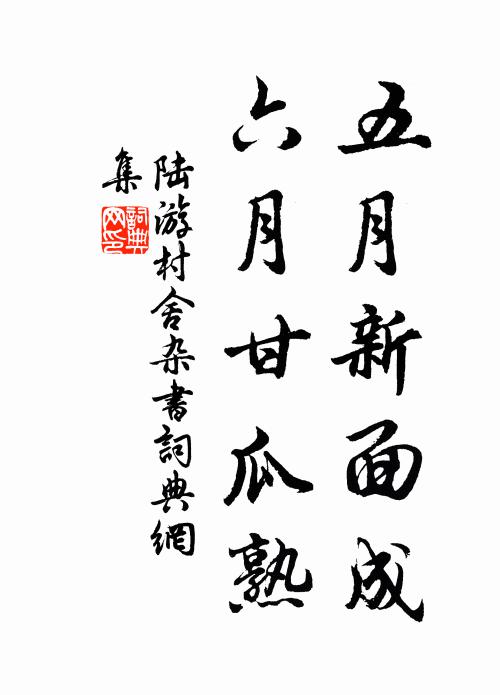 五月新面成
六月甘瓜熟
陆游村舍杂书詞典網
集
詞典
网印